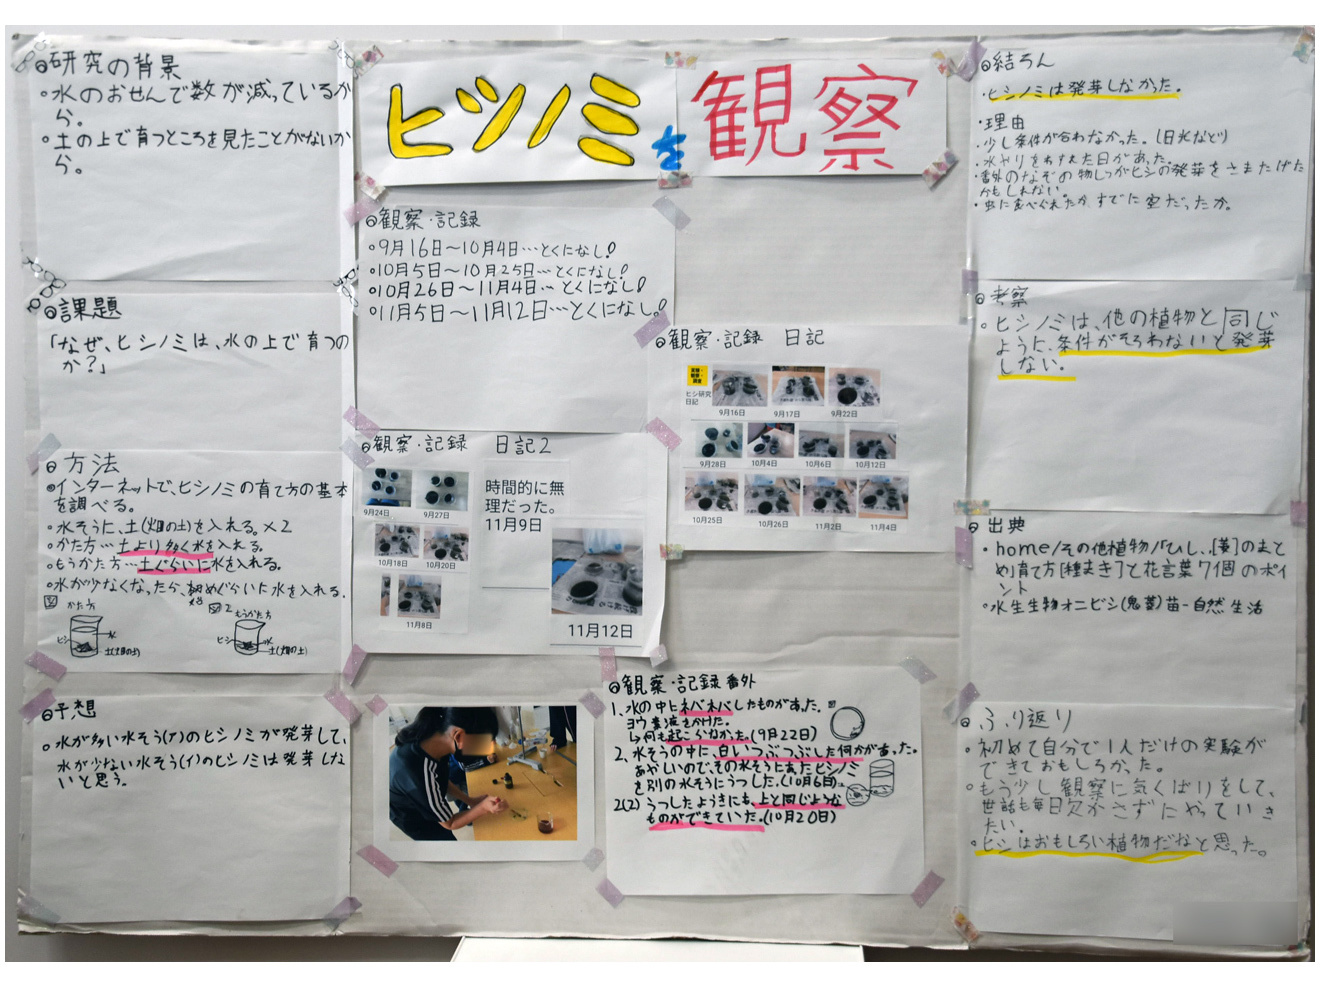 ◎研究の背景
・水のおせんで数が減っているか
ら。
・土の上で育つところを見たことがないか
ら。
◎課題
「なぜ、ヒシノミは、水の上で育つの
か?」
◎方法
◎インターネットで、ヒシノミの育て方の基本
を調べる。
・水そうに、土(畑の土)を入れる。×2
・かた方…土より多く水を入れる。
・もうかた方…土ぐらいに水を入れる。
・水が少なくなったら、初めぐらいに水を入れる。
図1 かた方
ヒシ
水
土(畑の土)
図2 もうかた方
ヒシ
水
土(畑の土)
◎予想
・水が多い水そう(ア)のヒシノミが発芽して、
水が少ない水そう(イ)のヒシノミは発芽しな
いと思う。
ヒシノミを観察
◎観察・記録
・9月16日〜10月4日…とくになし!
・10月5日〜10月25日…とくになし!
・10月26日〜11月4日…とくになし!
・11月5日〜11月12日…とくになし!
◎観察・記録 日記
実験・
観察・
調査
ヒシ研究
日記
9月16日
9月17日
9月22日
9月28日
10月4日
10月6日
10月12日
10月25日
10月26日
11月2日
11月4日
◎観察・記録 日記2
9月24日
9月27日
10月18日
10月20日
11月8日
時間的に無
理だった。
11月9日
11月12日
◎観察・記録 番外
1、水の中にネバネバしたものがあった。
ヨウ素液をかけた。
↳何も起こらなかった。(9月22日)
2、水そうの中に、白いつぶつぶした何かがあった。
あやしいので、その水そうにあったヒシノミ
を別の水そうにうつした。(10月6日)
2(2) うつしたようきにも、上と同じような
ものができていた。(10月20日)
◎結ろん
・ヒシノミは発芽しなかった。
・理由
・少し条件が合わなかった。(日光など)
・水ヤリをわすれた日があった。
・番外のなぞの物しつがヒシの発芽をさまたげた
かもしれない。
・虫に食べられたか、すでに空だったか。
◎考察
・ヒシノミは、他の植物と同じ
ように、条件がそろわないと発芽
しない。
◎出典
・home/その他植物/「ひし、[菱]のまと
め!育て方[種まき]と花言葉7個のポイ
ント
・水生生物オニビシ(鬼菱)苗-自然生活
◎ふり返り
・初めて自分で1人だけの実験が
できておもしろかった。
・もう少し観察に気くばりをして、
世話も毎日欠かさずにやっていき
たい。
・ヒシはおもしろい植物だなと思った。